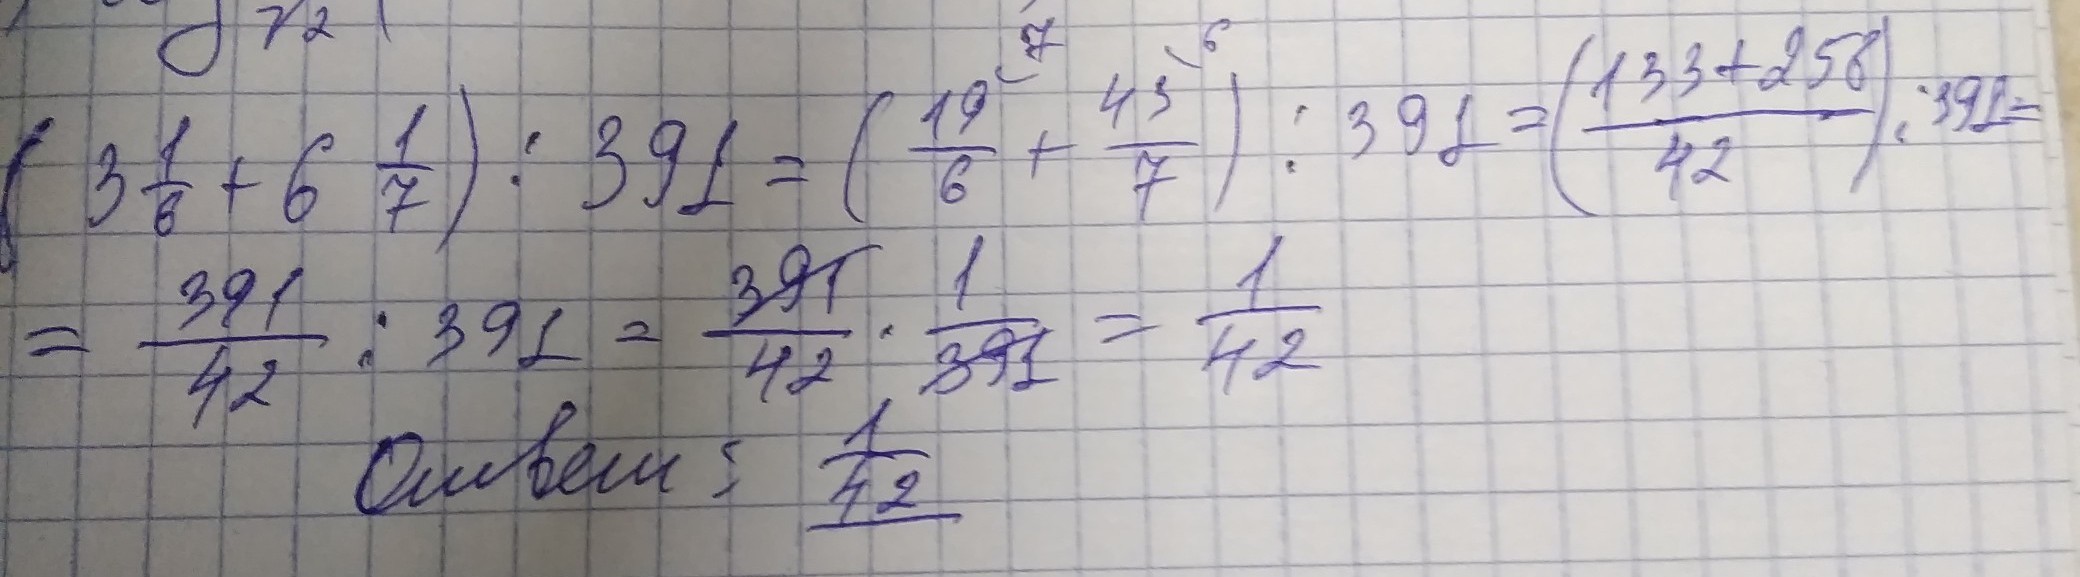 (3 1/6 + 6 1/7) : 391 = (19/6 + 43/7) : 391 = (133+258/42) : 391 =
= 391/42 : 391 = 391/42 · 1/391 = 1/42
Ответ: 1/42